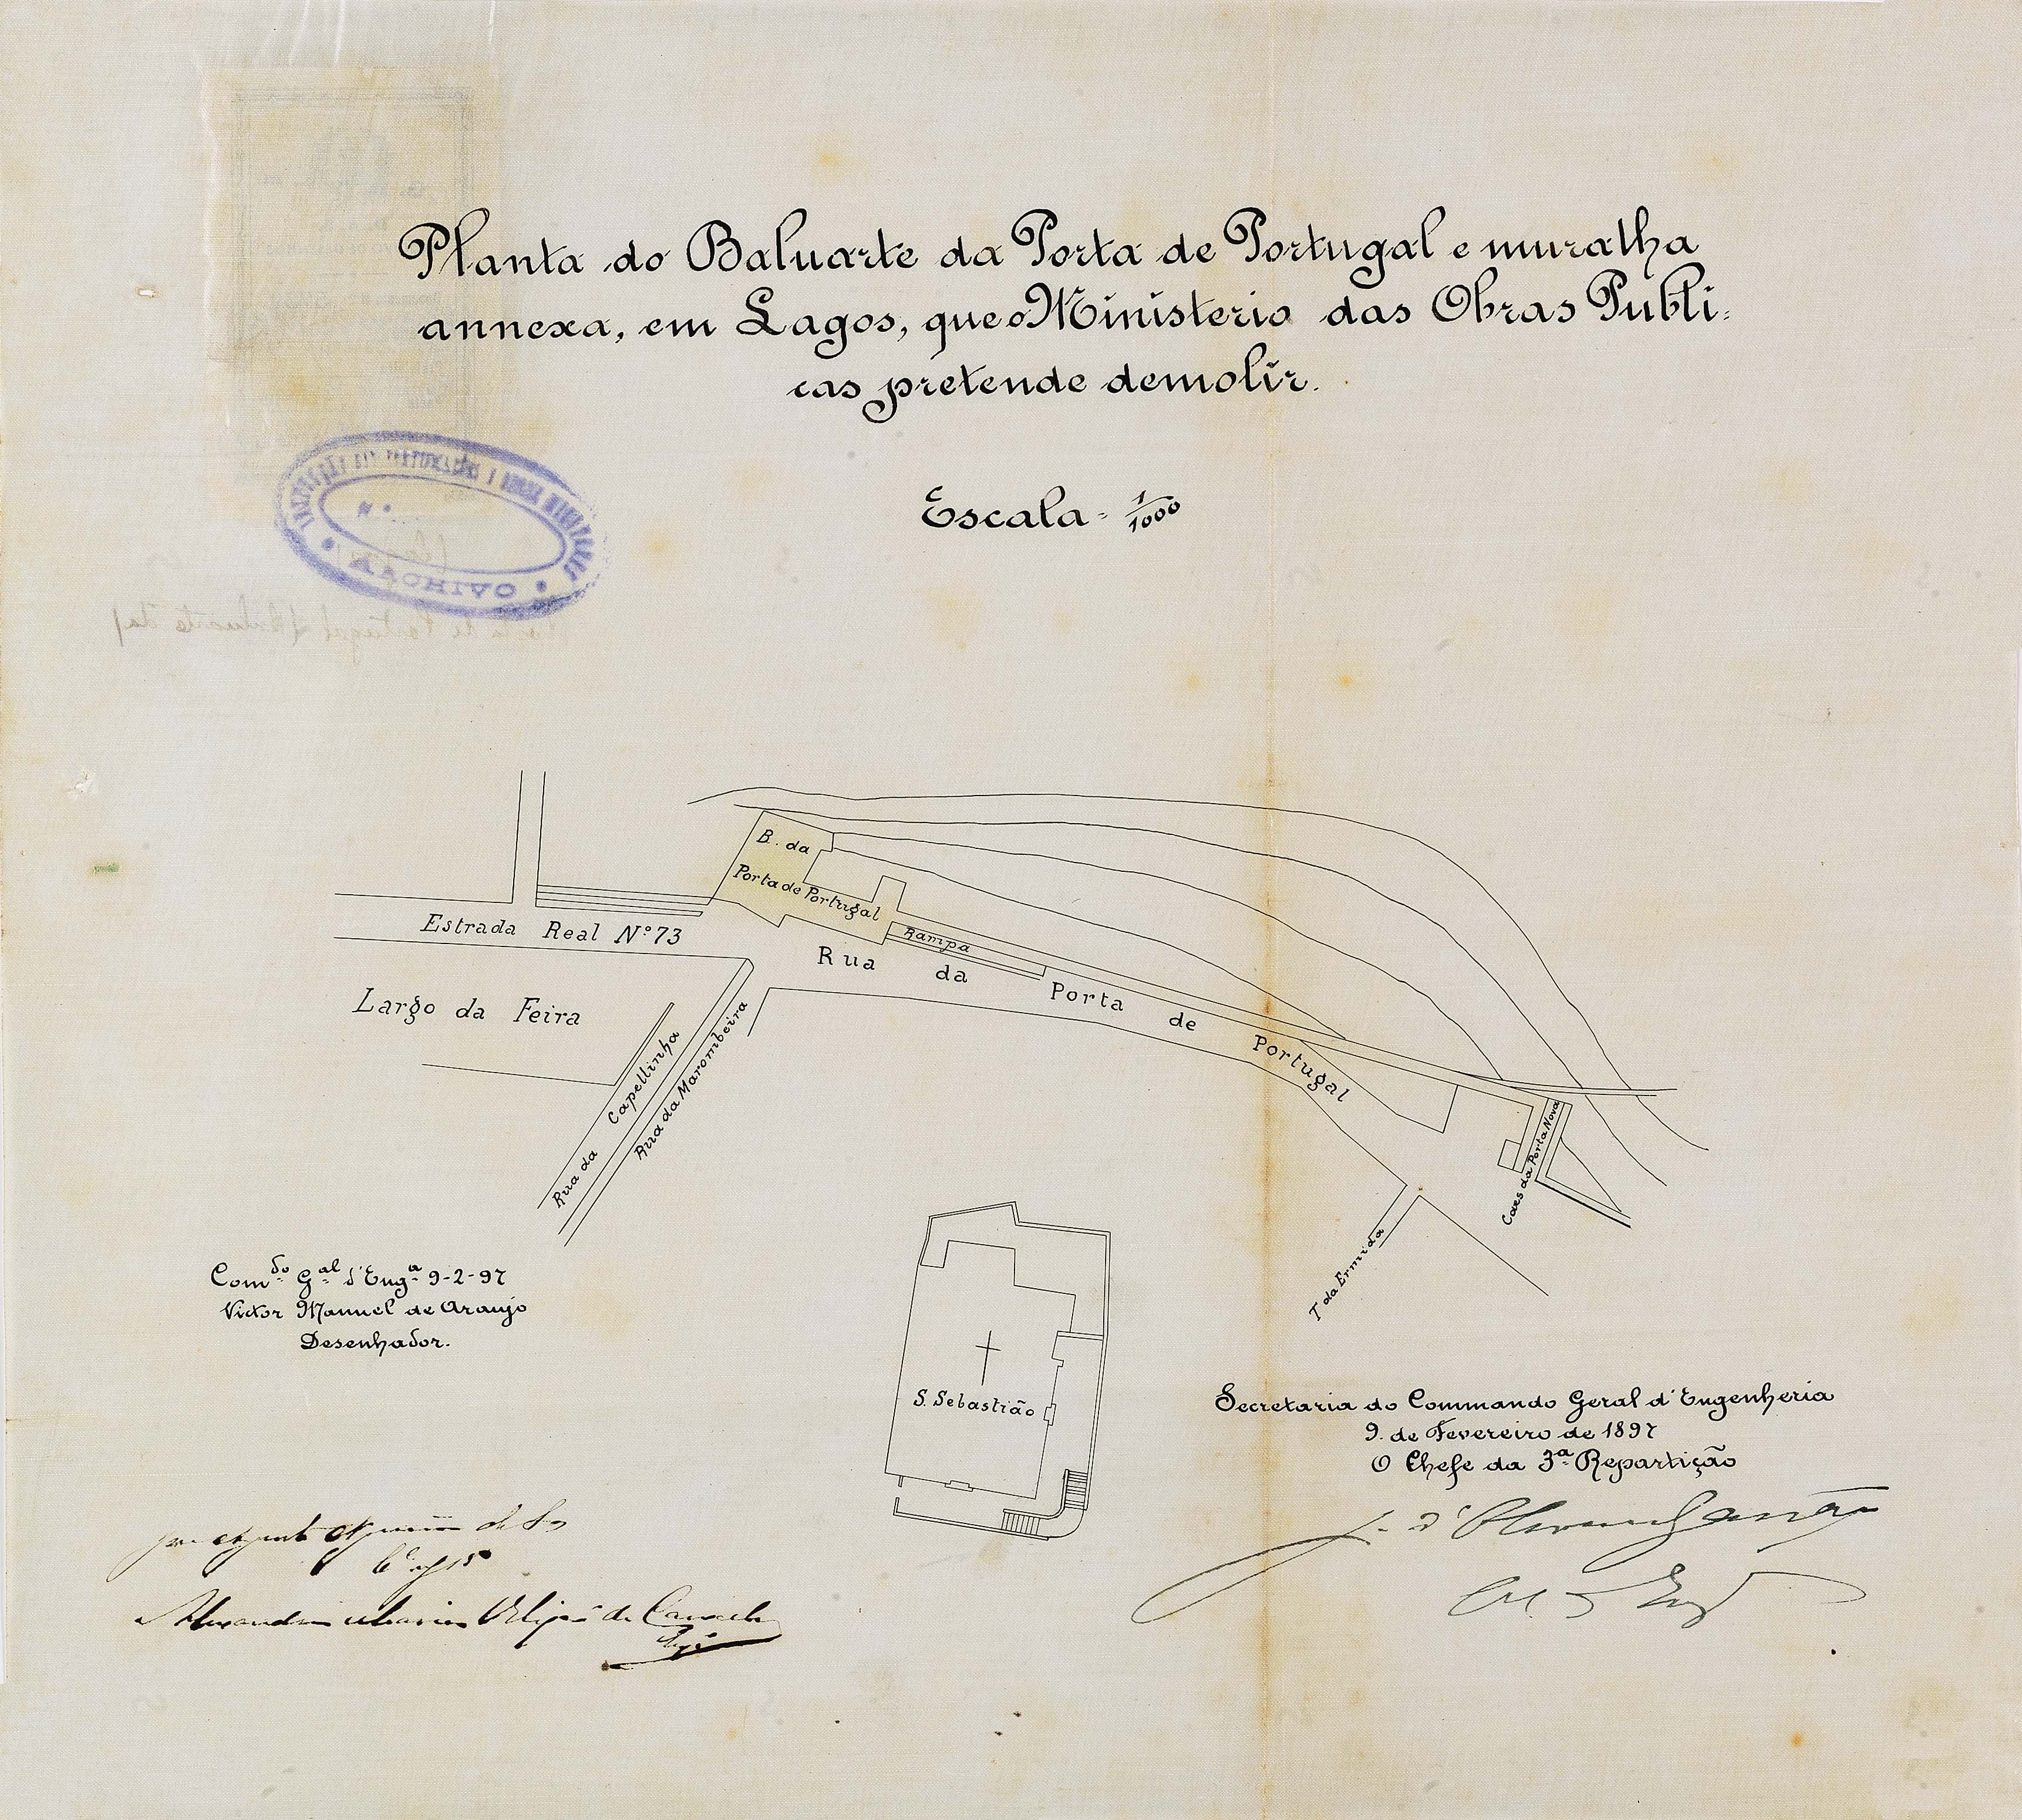 Planta do Baluarte da Porta de Portugal e muralha
annexa, em Lagos, que o Ministerio das Obras Publi=
cas pretende demolir.
Escala = 1/1000
ARCHIVO
B. da
Porta de Portugal
Estrada Real Nº 73
Rampa
Rua da Porta de Portugal
Largo da Feira
Rua da Capellinha
Rua da Marombeira
Caes da Porta Nova
T. da Ermida
S. Sebastião
Comdo Gal d'Enga 9-2-97
Victor Manuel de Araujo
Desenhador.
Secretaria do Commando Geral d'Engenheria
9. de Fevereiro de 1897
O Chefe da 3ª Repartição